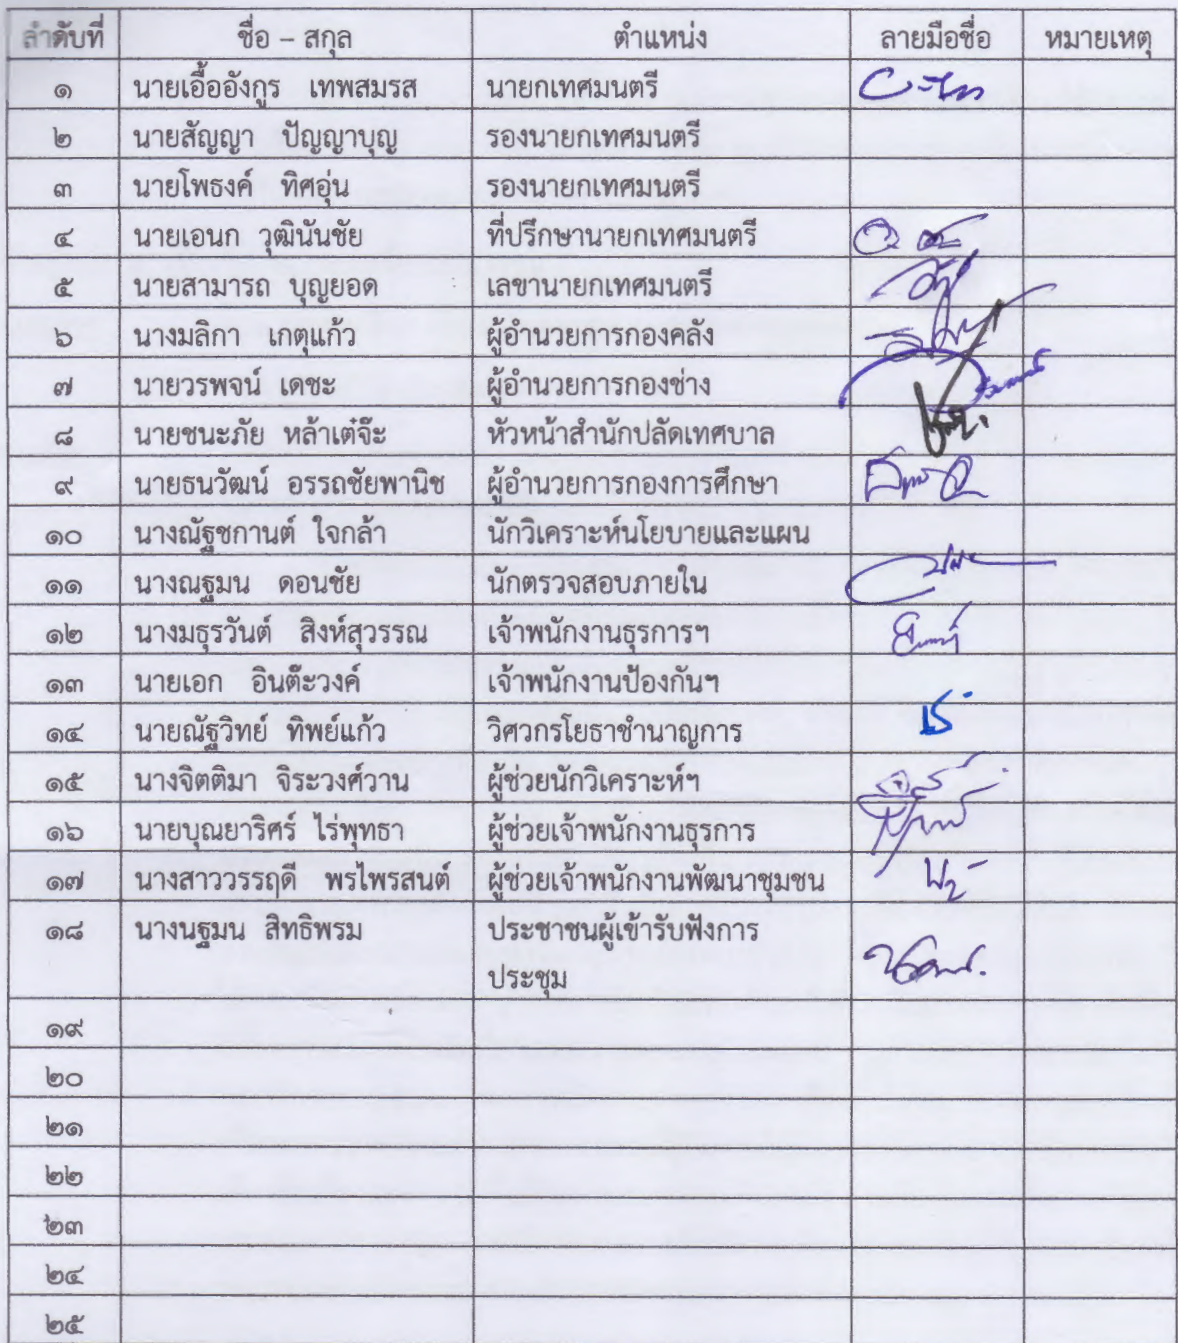 ลำดับที่ ชื่อ – สกุล ตำแหน่ง ลายมือชื่อ หมายเหตุ
๑ นายเอื้ออังกูร เทพสมรส นายกเทศมนตรี
๒ นายสัญญา ปัญญาบุญ รองนายกเทศมนตรี
๓ นายโพธงค์ ทิศอุ่น รองนายกเทศมนตรี
๔ นายเอนก วุฒินันชัย ที่ปรึกษานายกเทศมนตรี
๕ นายสามารถ บุญยอด เลขานายกเทศมนตรี
๖ นางมลิกา เกตุแก้ว ผู้อำนวยการกองคลัง
๗ นายวรพจน์ เดชะ ผู้อำนวยการกองช่าง
๘ นายชนะภัย หล้าเต๋จ๊ะ หัวหน้าสำนักปลัดเทศบาล
๙ นายธนวัฒน์ อรรถชัยพานิช ผู้อำนวยการกองการศึกษา
๑๐ นางณัฐชกานต์ ใจกล้า นักวิเคราะห์นโยบายและแผน
๑๑ นางณฐมน ดอนชัย นักตรวจสอบภายใน
๑๒ นางมธุรวันต์ สิงห์สุวรรณ เจ้าพนักงานธุรการฯ
๑๓ นายเอก อินต๊ะวงค์ เจ้าพนักงานป้องกันฯ
๑๔ นายณัฐวิทย์ ทิพย์แก้ว วิศวกรโยธาชำนาญการ
๑๕ นางจิตติมา จิระวงศ์วาน ผู้ช่วยนักวิเคราะห์ฯ
๑๖ นายบุณยาริศร์ ไร่พุทธา ผู้ช่วยเจ้าพนักงานธุรการ
๑๗ นางสาววรรฤดี พรไพรสนต์ ผู้ช่วยเจ้าพนักงานพัฒนาชุมชน
๑๘ นางนฐมน สิทธิพรม ประชาชนผู้เข้ารับฟังการ
ประชุม
๑๙
๒๐
๒๑
๒๒
๒๓
๒๔
๒๕